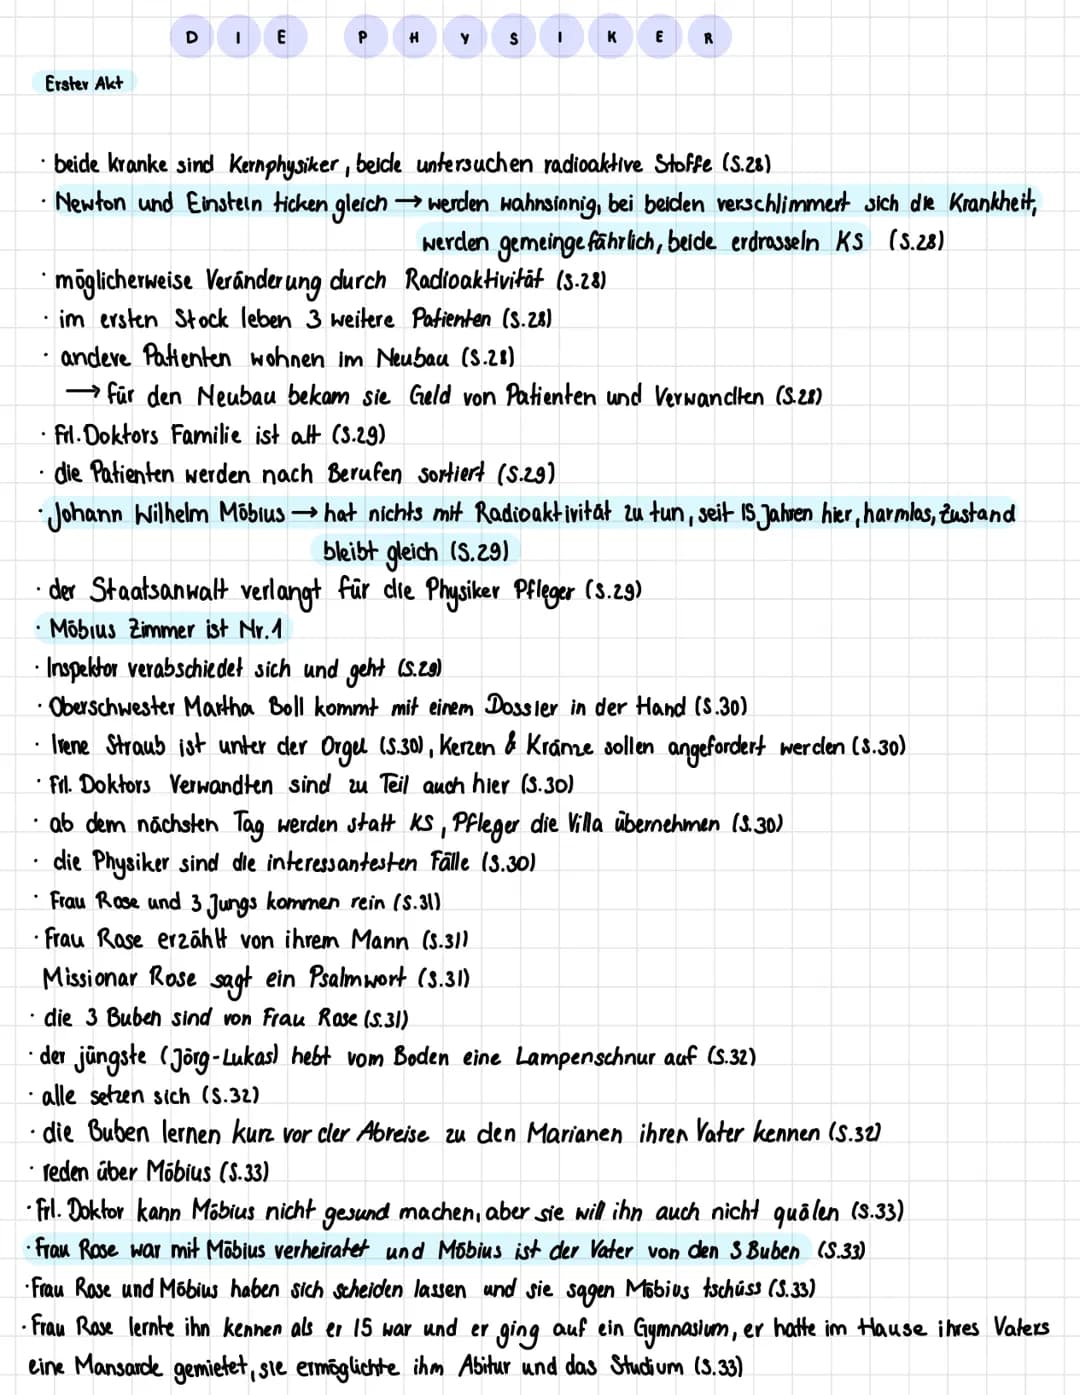 DIE PHYSIKER
Erster Akt
· beide kranke sind Kernphysiker, beide untersuchen radioaktive Stoffe (S.28)
· Newton und Einstein ticken gleich → werden wahnsinnig, bei beiden verschlimmert sich die Krankheit,
werden gemeingefährlich, beide erdrosseln KS (S.28)
· möglicherweise Veränderung durch Radioaktivität (S.28)
· im ersten Stock leben 3 weitere Patienten (S.28)
· andere Patienten wohnen im Neubau (S.28)
→ für den Neubau bekam sie Geld von Patienten und Verwandten (S.28)
· Frl. Doktors Familie ist alt (S.29)
· die Patienten werden nach Berufen sortiert (S.29)
· Johann Wilhelm Möbius → hat nichts mit Radioaktivität zu tun, seit 15 Jahren hier, harmlos, Zustand
bleibt gleich (S.29)
· der Staatsanwalt verlangt für die Physiker Pfleger (S.29)
· Möbius Zimmer ist Nr.1
· Inspektor verabschiedet sich und geht (S.29)
· Oberschwester Martha Boll kommt mit einem Dossier in der Hand (S.30)
· Irene Straub ist unter der Orgel (S.30), Kerzen & Kränze sollen angefordert werden (S.30)
· Frl. Doktors Verwandten sind zu Teil auch hier (S.30)
· ab dem nächsten Tag werden statt KS, Pfleger die Villa übernehmen (S.30)
· die Physiker sind die interessantesten Fälle (S.30)
· Frau Rose und 3 Jungs kommen rein (S.31)
· Frau Rose erzählt von ihrem Mann (S.31)
Missionar Rose sagt ein Psalmwort (S.31)
· die 3 Buben sind von Frau Rose (S.31)
· der jüngste (Jörg-Lukas) hebt vom Boden eine Lampenschnur auf (S.32)
· alle setzen sich (S.32)
· die Buben lernen kurz vor der Abreise zu den Marianen ihren Vater kennen (S.32)
· reden über Möbius (S.33)
· Frl. Doktor kann Möbius nicht gesund machen, aber sie will ihn auch nicht quälen (S.33)
· Frau Rose war mit Möbius verheiratet und Möbius ist der Vater von den 3 Buben (S.33)
· Frau Rose und Möbius haben sich scheiden lassen und sie sagen Möbius tschüss (S.33)
· Frau Rose lernte ihn kennen als er 15 war und er ging auf ein Gymnasium, er hatte im Hause ihres Vaters
eine Mansarde gemietet, sie ermöglichte ihm Abitur und das Studium (S.33)